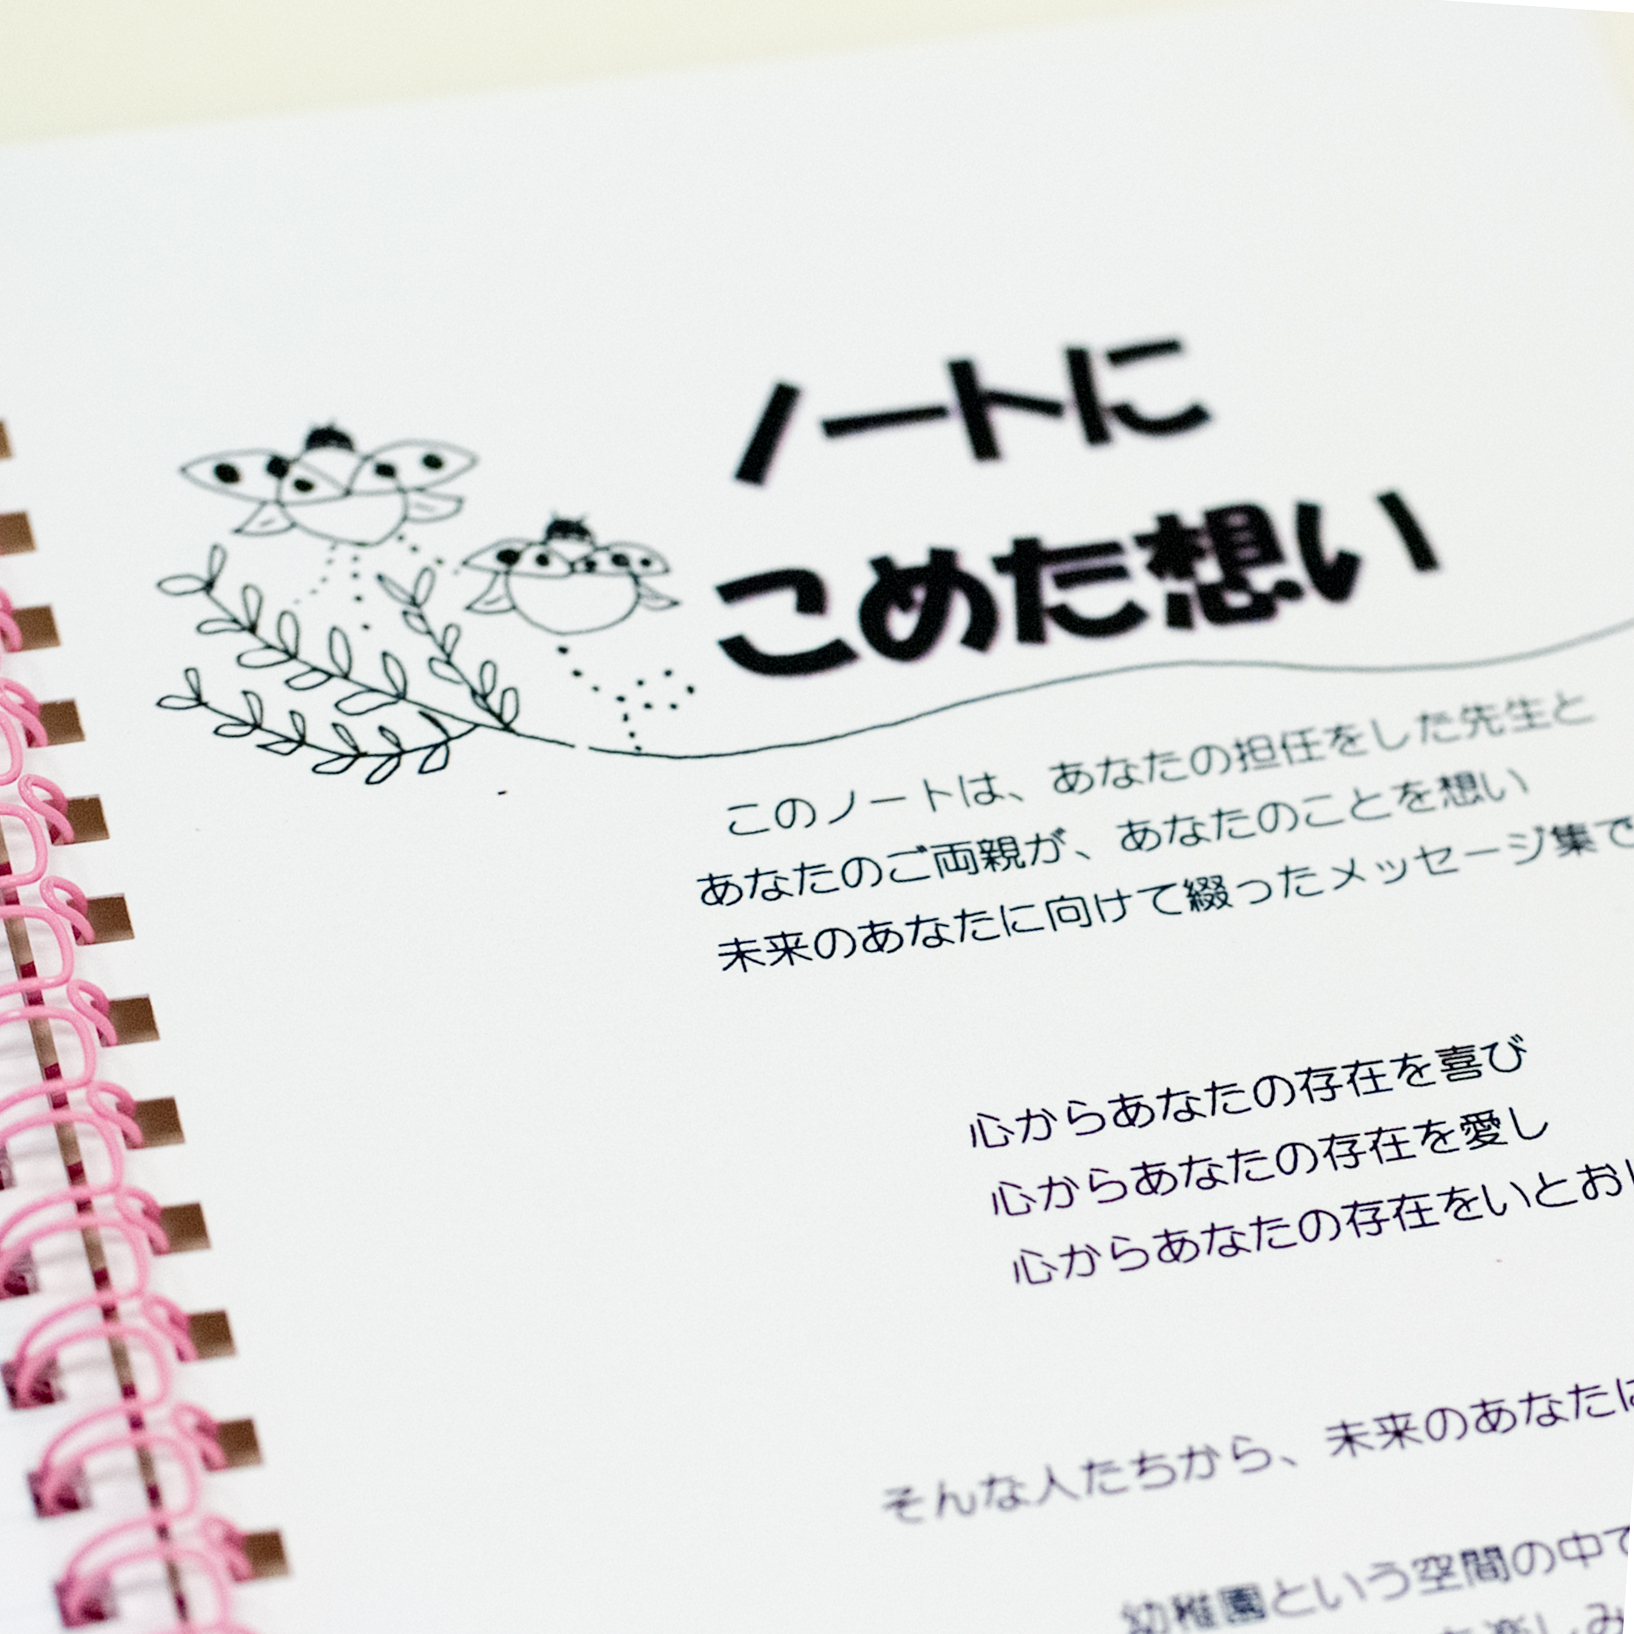 ノートに
こめた想い
このノートは、あなたの担任をした先生と
あなたのご両親が、あなたのことを想い
未来のあなたに向けて綴ったメッセージ集で
心からあなたの存在を喜び
心からあなたの存在を愛し
心からあなたの存在をいとおし
そんな人たちから、未来のあなたに
幼稚園という空間の中で
を楽しみ